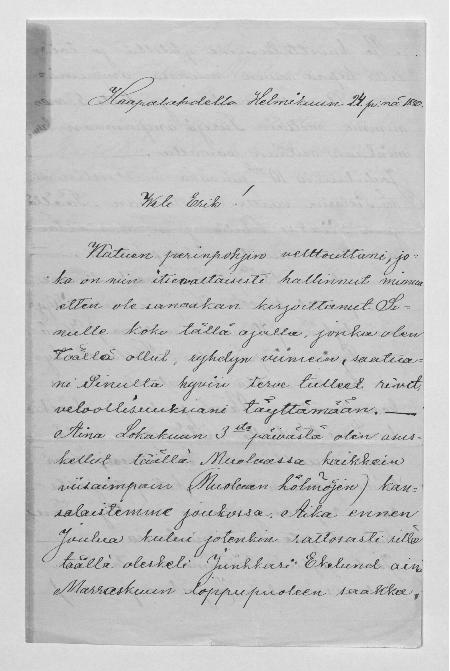 Haapalahdella Helmikuun 24 p:nä 1880.
Weli Erik!
Katuen perinpohjin velttouttani, jo-
ka on niin itsevaltaisesti hallinnut minua
etten ole sanaakan kirjoittanut Si-
nulle koko tällä ajalla, jonka olen
täällä ollut, ryhdyn viimein, saatua-
ni Sinulta hyvin terve tulleet rivit,
velvollisuuksiani täyttämään. —
Aina Lokakuun 3 päivästä olen asus-
kellut täällä Muolaassa kaikkein
viisaimpain (Muolaan hölmöjen) kan-
salaistemme joukossa. Aika ennen
Joulua kului jotenkin rattosasti sillä
täällä oleskeli Junkkari Ekelund aina
Marraskuun loppupuoleen saakka,